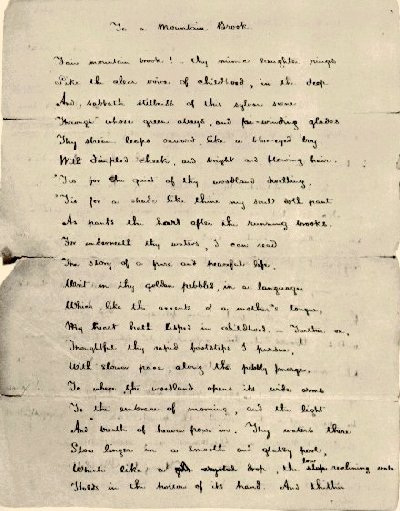 To a Mountain Brook
Fair mountain brook! - thy mimic laughter rings
Like the clear voice of childhood, in the deep
And, sabbath stillness of this sylvan scene
Through whose green alleys, and far-winding glades
Thy stream leaps onward like a blue-eyed boy
With dimpled cheek, and bright and flowing hair.
'Tis for the quiet of thy woodland dwelling,
'Tis for a shade like thine my soul doth pant
As pants the heart after the running brooks.
For underneath thy waters, I can read
The story of a pure and peaceful life,
Writ in thy golden pebbles, in a language
Which, like the accents of a mother's tongue,
My heart hath lisped in childhood. - Further on,
Thoughtful thy rapid footsteps I pursue,
With slower pace, along the pebbly margin,
To where the woodland opens its wide arms
To the embrace of morning, and the light
And breath of heaven from me. Thy waters there
Slow linger in a smooth and glassy pool,
Which like a crystal drop, the low reclining vale
Holds in the hollow of its hand. And thither